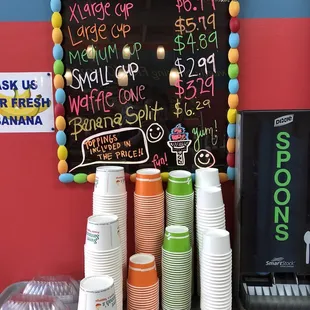 XLarge cup
Large cup $5.79
Medium cup $4.89
Small cup $2.99
Waffle Cone $3.29
Banana Split $6.29
TOPPINGS
INCLUDED IN
THE PRICE!!
yum!
fun!
ASK US
FRESH
BANANA
DIXIE
SPOONS
SmartStock